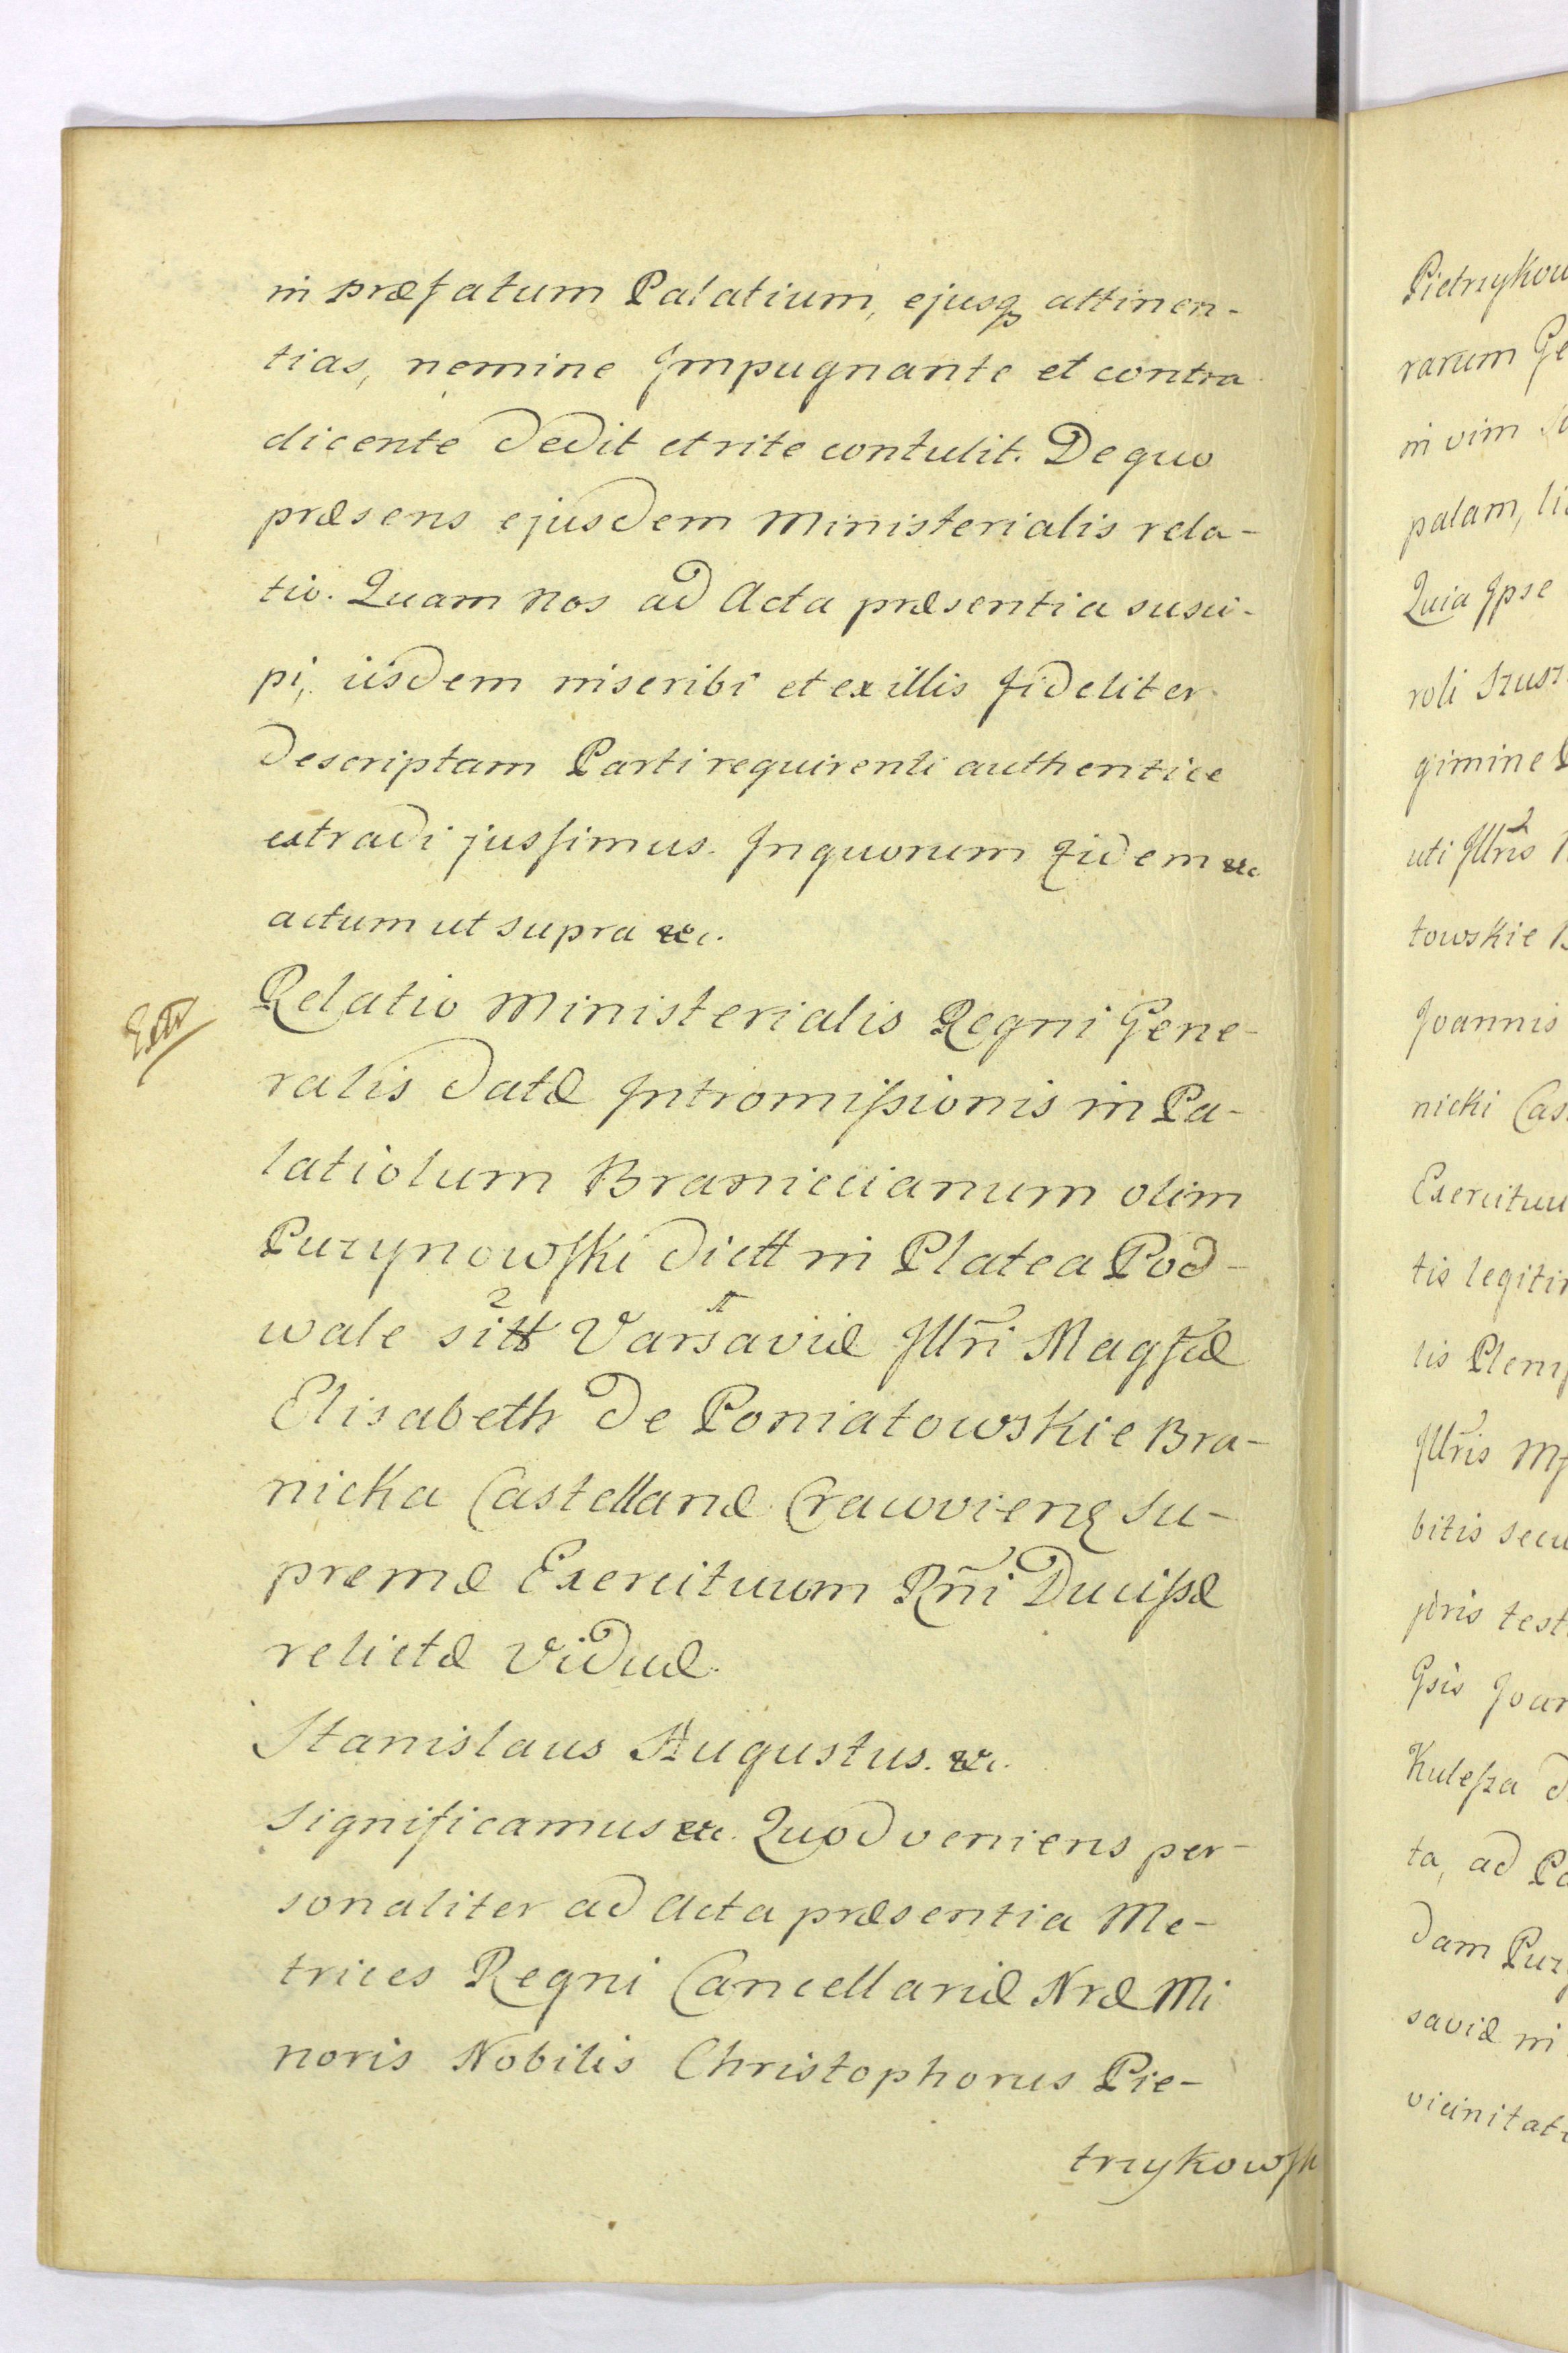 in præfatum Palatium, ejusq attinen-
tias, nemine Impugnante et contra
dicente dedit et rite contulit. De quo
præsens ejusdem Ministerialis rela-
tio. Quam Nos ad Acta præsentia susci-
pi, iisdem inscribi et ex illis fideliter
descriptam Parti requirenti authentice
extradi jussimus. In quorum fidem &c
actum ut supra &c.
Relatio Ministerialis Regni Gene-
ralis datæ Intromissionis in Pa-
latiolum Braniccianum olim
Puzynowski dictt in Platea Pod-
wale sitt Varsaviæ Illri Magfæ
Elisabeth de Poniatowskie Bra-
nicka Castellanæ Cracovienę Su-
premæ Exercituum Rni Ducissæ
relictæ Viduæ.
Stanislaus Augustus. &c.
Significamus &c. Quod veniens per-
sonaliter ad Acta præsentia Me-
trices Regni Cancellariæ Nræ Mi
noris Nobilis Christophorus Pie-
trzykowsk
Pietrzykow
rarum Ge
in vim
palam, li
Quia Ipse
roli Szusz
gimine
uti Illris
towskie B
Joannis
nicki Cas
Exercituu
tis legiti
lis Plenip
Illris
bitis secu
juris test
Ipsis Joan
Kulesza d
ta, ad Pa
dam Puz
saviæ in
vicinitat